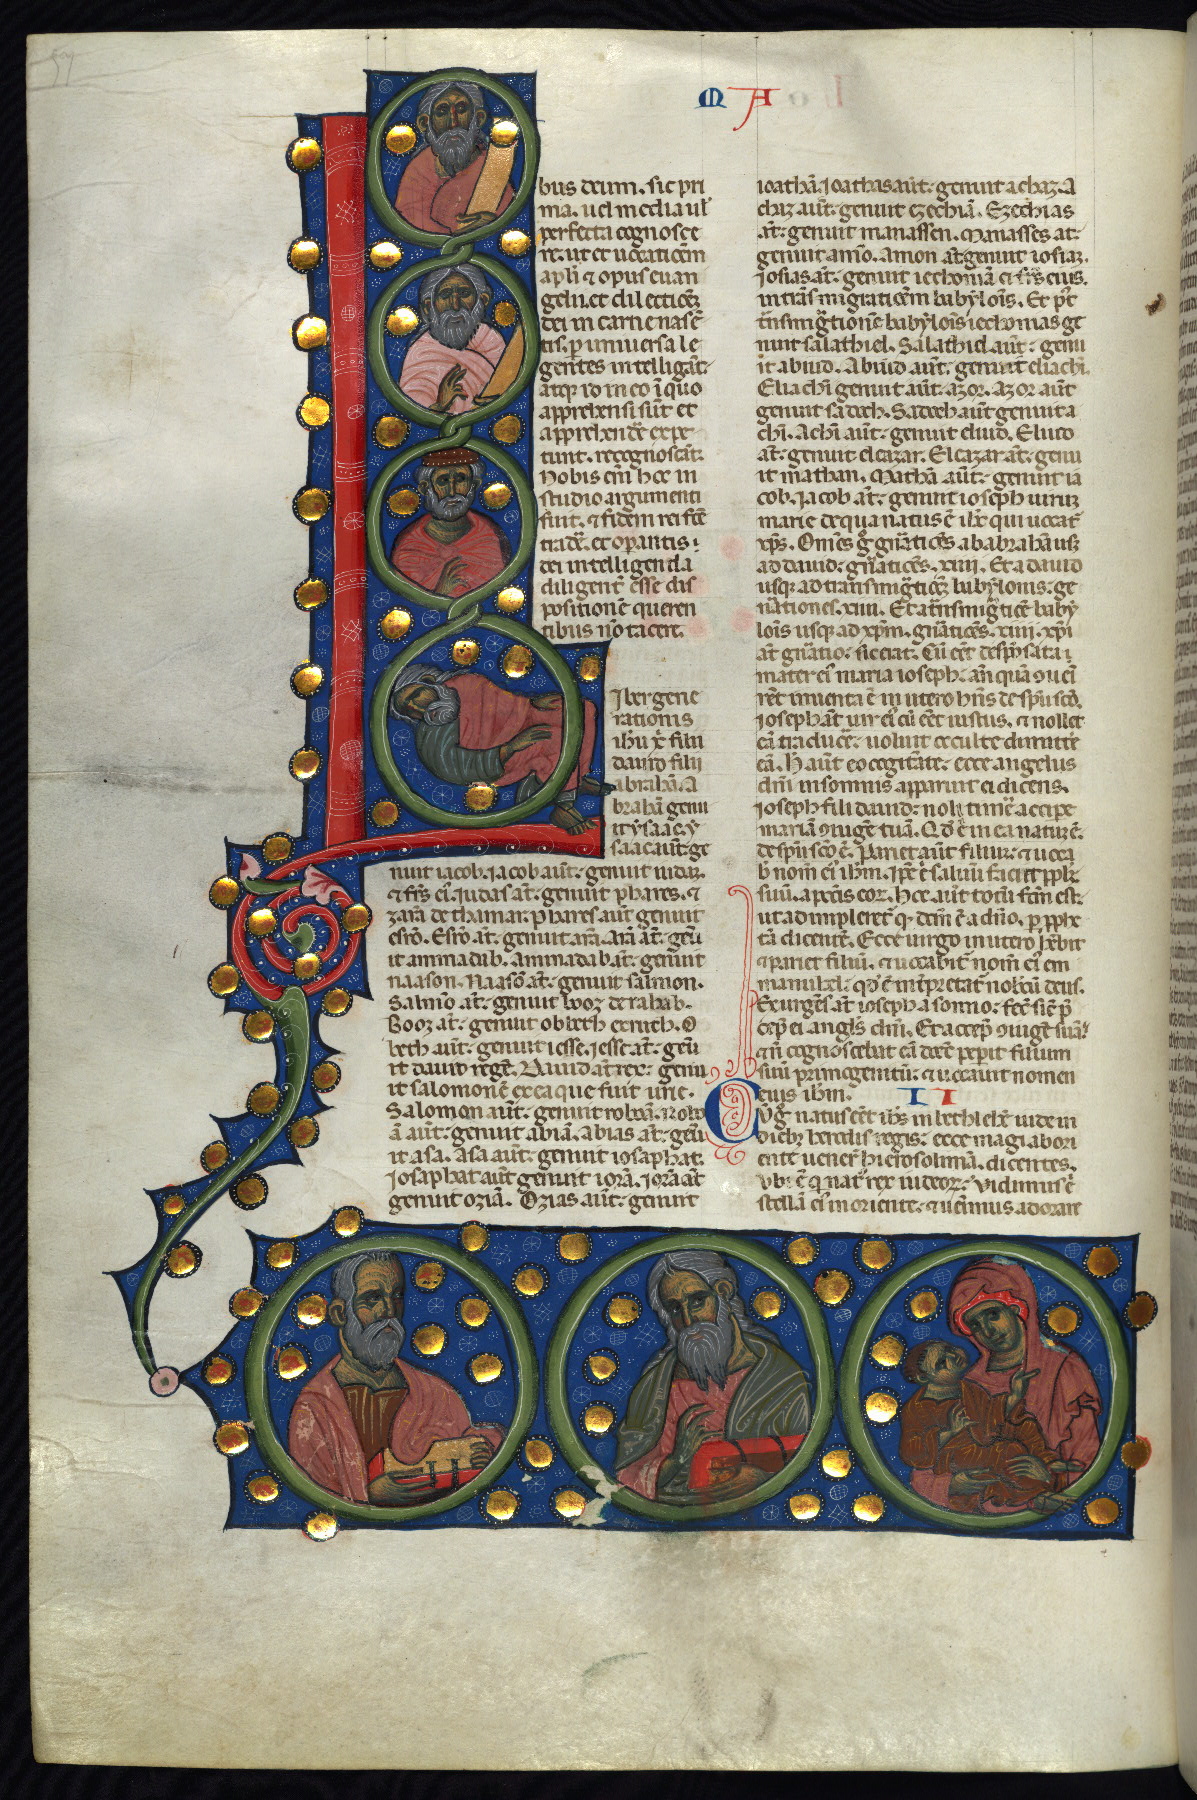 M A
bus deum. sic pri
ma. uel media ul
perfecta cognosce
re. ut et uocationem
apli & opus euan
gelii. et dilectionem
dei in carne nascen
tis. p uniuersa le
gentes intelligant
atq; id in eo i quo
apprehensi sunt et
apprehendere expe
tunt. recognoscant.
Nobis enim hoc in
studio argumenti
fuit. & fidem rei facte
tradere. et operantis
dei intelligenda
diligenter esse dis
positionem queren
tibus non tacere.
Iber gene
rationis
ihu x filii
dauid filii
abraham. A
braham genu
it ysaac. y
saac aut. ge
nuit iacob. Iacob aut. genuit iudam.
& frs ei. Iudas at. genuit phares. &
zara de thamar. phares aut genuit
esro. Esro at. genuit ara. ara at. genu
it aminadab. Aminadab at. genuit
naason. Naaso at. genuit salmon.
Salmo at. genuit booz de rahab.
Booz at. genuit obeth ex ruth. O
beth aut. genuit iesse. iesse at. genu
it dauid rege. Dauid at rex. genu
it salomone ex ea que fuit urie.
Salomon aut. genuit roboa. Robo
a aut. genuit abia. abias at. genu
it asa. Asa aut. genuit iosaphat.
Iosaphat aut genuit iora. iora at
genuit ozia. Ozias aut. genuit
ioatha. Ioathas aut. genuit achaz. A
chaz aut. genuit ezechia. Ezechias
at. genuit manassen. Manasses at.
genuit amo. Amon at genuit iosiaz.
Iosias at. genuit iechonia et frs eius.
in transmigratione babylois. Et pt
tnsmigtione babylois iechonias ge
nuit salathiel. Salathiel aut. genu
it abiud. Abiud aut. genuit eliachi.
Eliachi genuit aut. azor. Azor aut
genuit sadoch. Sadoch aut genuit a
chi. Achi aut. genuit eliud. Eliud
at. genuit eleazar. Eleazar at. genu
it mathan. Matha aut. genuit ia
cob. Iacob at. genuit ioseph uirum
marie de qua natus e ihc qui uocat
xps. Omes g gnatioes ab abraha usq
ad dauid. gnatioes. xiiii. Et a dauid
usq; ad transmigtioe babylonis. ge
nationes. xiiii. Et a tnsmigtioe baby
lois usq; ad xpm. gnatioes. xiiii. xpi
at gnatio. sic erat. Cu eet desponsata
mater ei maria ioseph. anqua 9uei
rent inuenta e in utero hns de spu sco.
Ioseph at uir ei cu eet iustus. & nollet
ea traducere. uoluit occulte dimittere
ea. H aut eo cogitate. ecce angelus
dni in somnis apparuit ei dicens.
Ioseph fili dauid. noli timere accipe
maria 9iuge tua. Qd e in ea natum e.
de spu sco e. Pariet aut filium. & uoca
b nom ei ihm. Ipe e saluu faciet pplm
suu. a pctis eor. Hoc aut totu fcm est.
ut adimpleret q dcm e a dno. p pphe
ta dicente. Ecce uirgo in utero hebit
& pariet filiu. & uocabit nom ei em
manuhel. qd e interpretat nobcu deus.
Exurges at ioseph a somno. fec sic p
cep ei angls dni. Et accep 9iuge sua
& n cognoscebat ea donec peperit filium
suu primogenitu. & uocauit nomen
eius ihm. II
Cug natus eet ihs in bethlehe iude in
dieb; herodis regis. ecce magi ab ori
ente uener hierosolima. dicentes.
Vbi e q nat e rex iudeor. Vidimus e
stella ei in oriente. & uenimus adorare